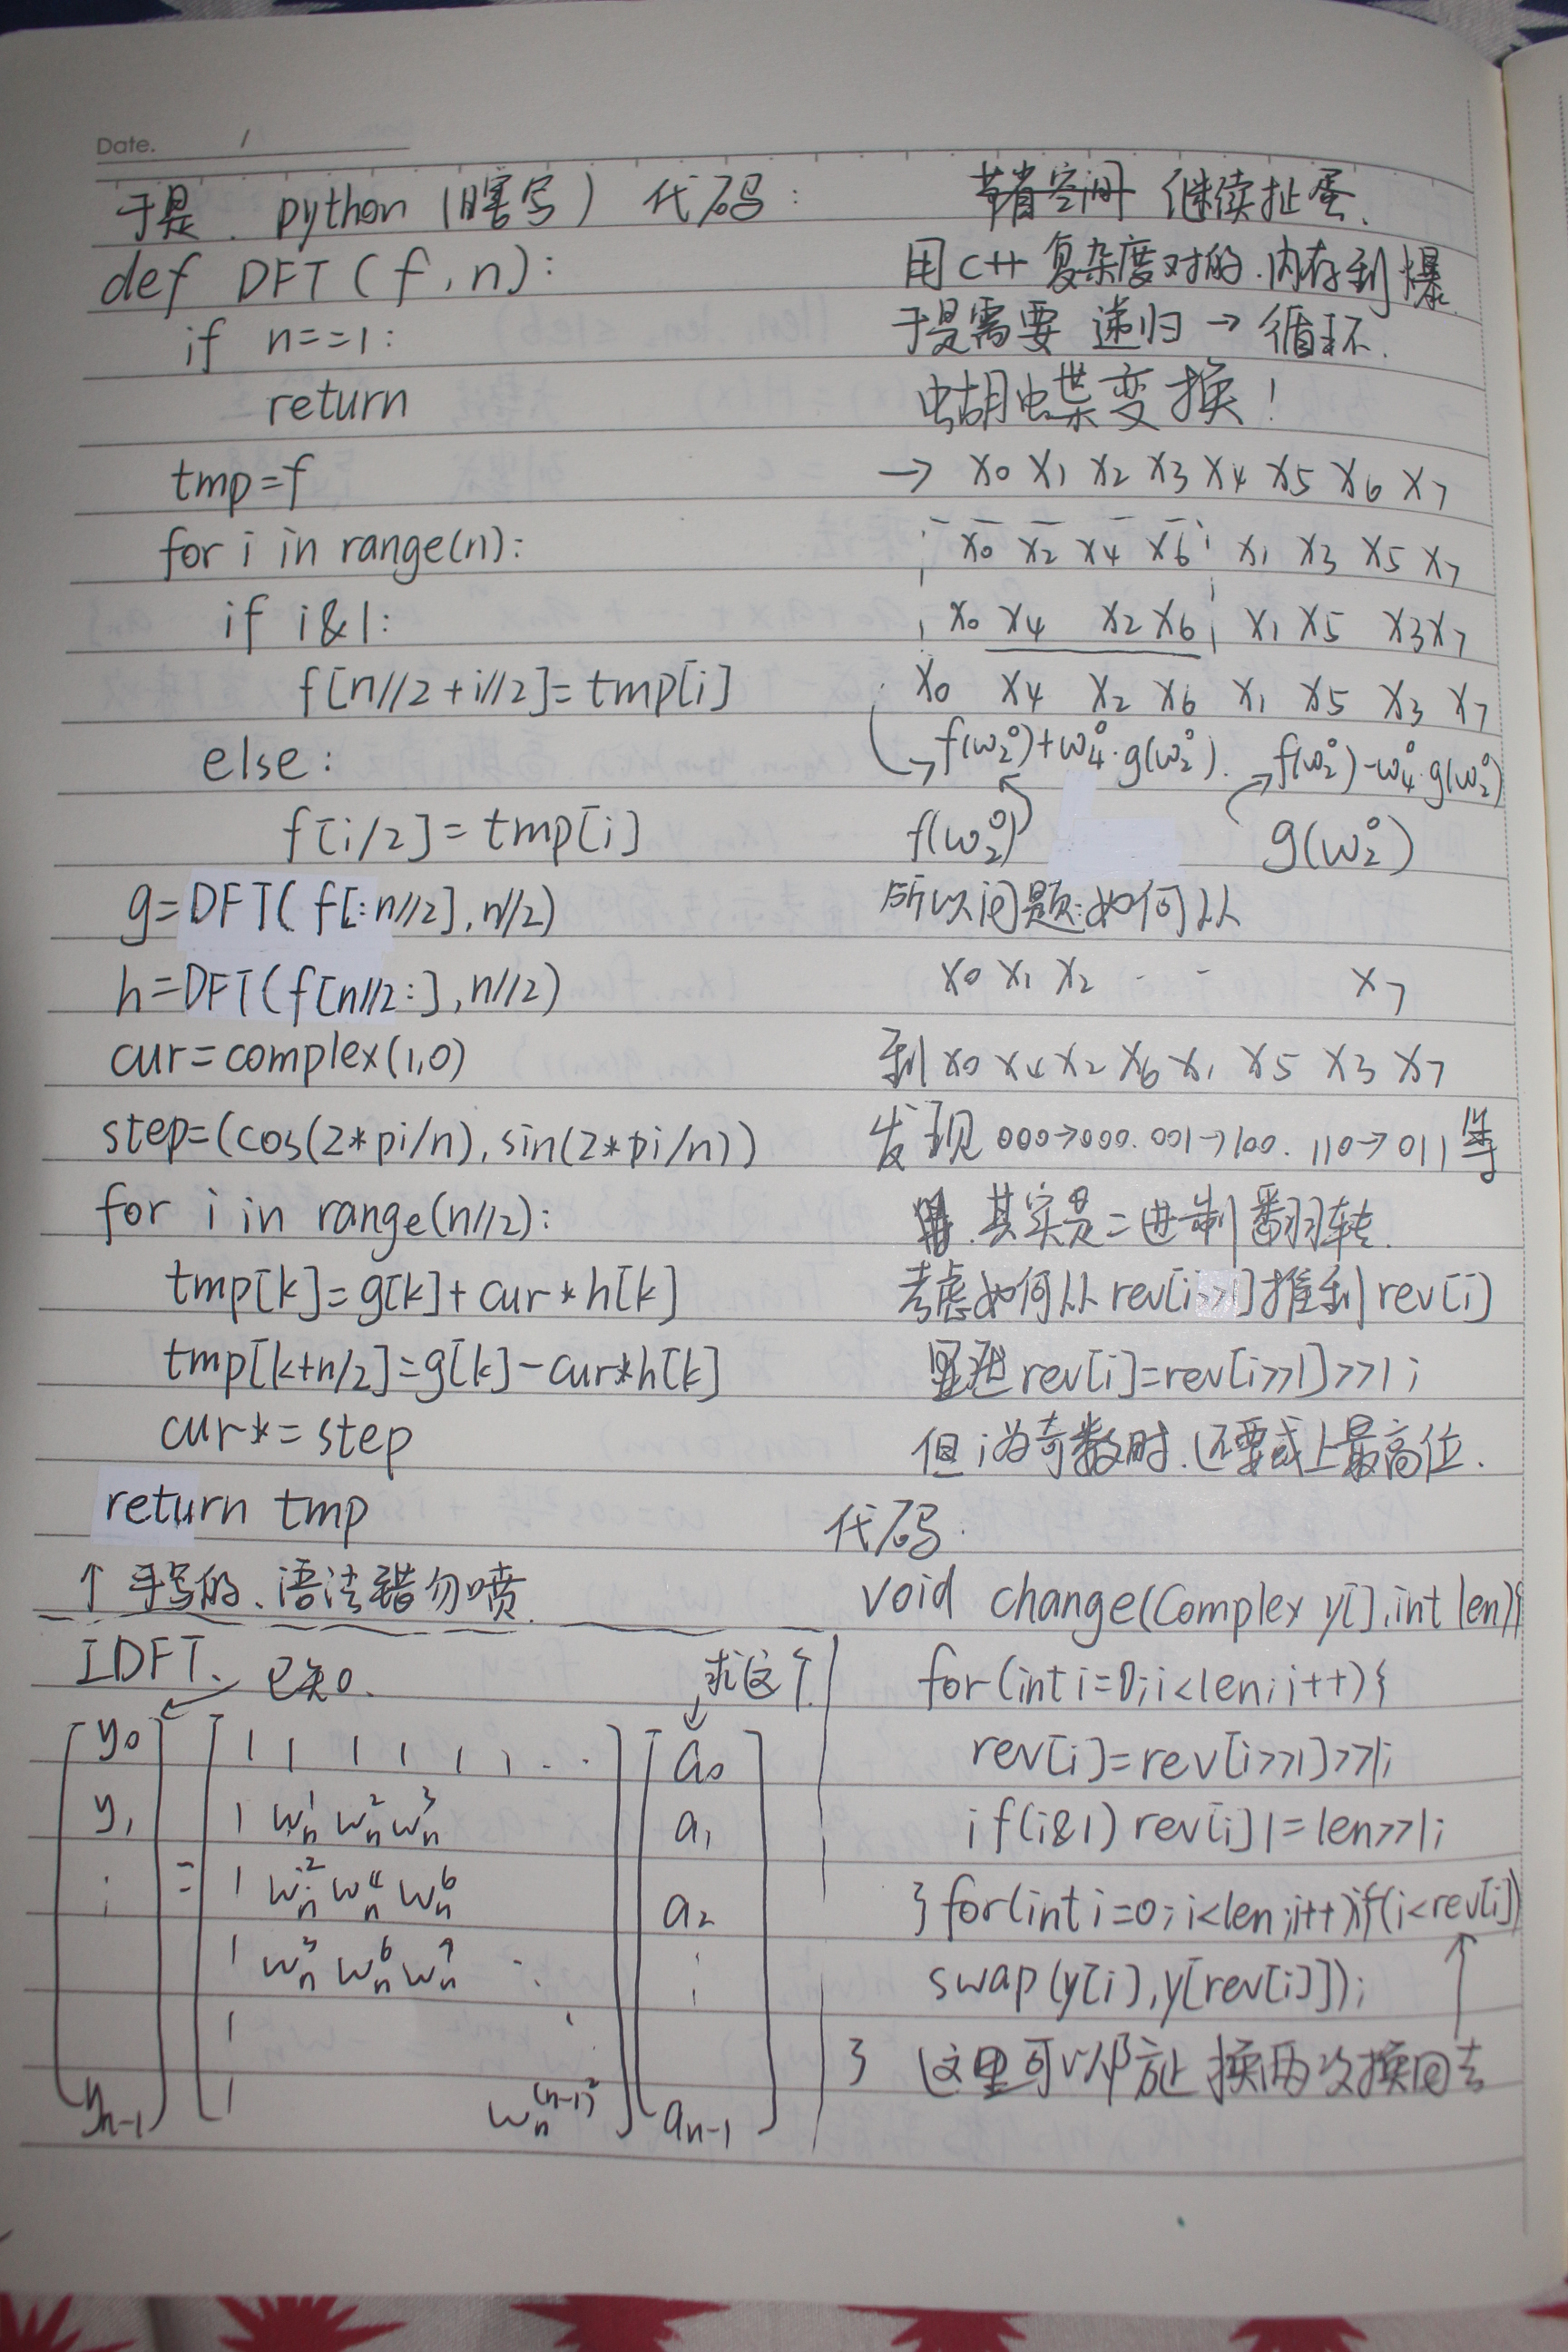 Date. /
于是. python (瞎写) 代码:
def DFT(f,n):
if n==1:
return
tmp=f
for i in range(n):
if i&1:
f[n//2+i//2]=tmp[i]
else:
f[i/2]=tmp[i]
g=DFT(f[:n//2],n//2)
h=DFT(f[n//2:],n//2)
cur=complex(1,0)
step=(cos(2*pi/n),sin(2*pi/n))
for i in range(n//2):
tmp[k]=g[k]+cur*h[k]
tmp[k+n/2]=g[k]-cur*h[k]
cur*=step
return tmp
↑ 手写的、语法错勿喷.
IDFT、 已知. 求这个
y0 1 1 1 1 1 1 ... a0
y1 1 wn^1 wn^2 wn^3 a1
⋮ = 1 wn^2 wn^4 wn^6 a2
1 wn^3 wn^6 wn^9 ⋱ ⋮
1
yn-1 1 wn^(n-1)^2 an-1
节省空间 继续扯蛋.
用C++复杂度对的.内存到爆.
于是需要 递归→循环.
蝴蝶变换!
→ x0 x1 x2 x3 x4 x5 x6 x7
x0 x2 x4 x6 x1 x3 x5 x7
x0 x4 x2 x6 x1 x5 x3 x7
x0 x4 x2 x6 x1 x5 x3 x7
f(ω2^0)+ω4^0·g(ω2^0). f(ω2^0)-ω4^0·g(ω2^0)
f(ω2^0) g(ω2^0)
所以问题:如何从
x0 x1 x2 - - x7
到x0 x4 x2 x6 x1 x5 x3 x7
发现 000→000. 001→100. 110→011等
其实是二进制翻转.
考虑如何从rev[i>>1]推到rev[i]
显然rev[i]=rev[i>>1]>>1;
但i为奇数时.还要或上最高位.
代码:
void change(Complex y[],int len){
for(int i=0;i<len;i++){
rev[i]=rev[i>>1]>>1;
if(i&1) rev[i]|=len>>1;
}for(int i=0;i<len;i++)if(i<rev[i])
swap(y[i],y[rev[i]]);
} 这里可以防止换两次换回去